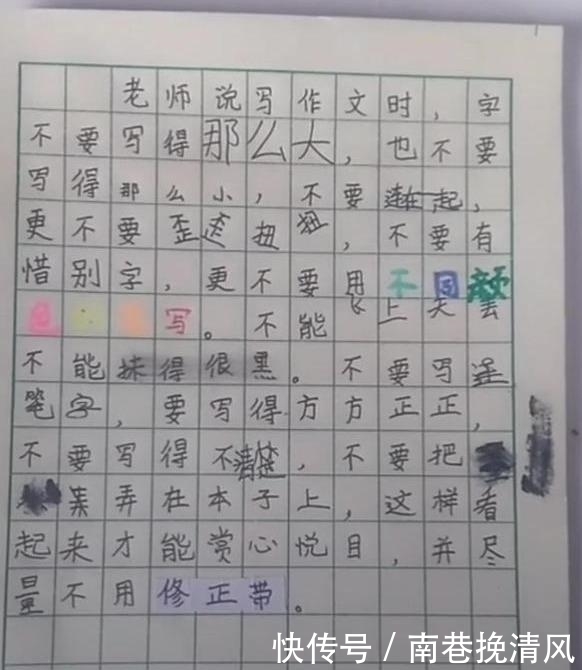 老师说写作文时，字
不要写得那么大，也不要
写得那么小，不要连在一起，
更不要歪歪扭扭，不要有
惜别字，更不要用不同颜
色 写。不能飞上天去
不能抹得很黑。不要写连
笔字，要写得方方正正，
不要写得不清楚，不要把
弄在本子上，这样看
起来才能赏心悦目，并尽
量不用修正带。
快传号／南巷挽清风